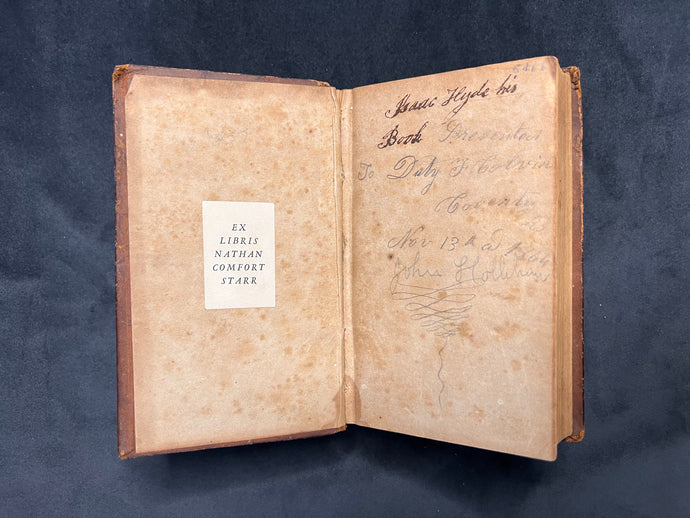 EX
LIBRIS
NATHAN
COMFORT
STARR
Isaac Hyde his
Book Presented
To Duty F Corvin
Coventry
Nov 13th
John